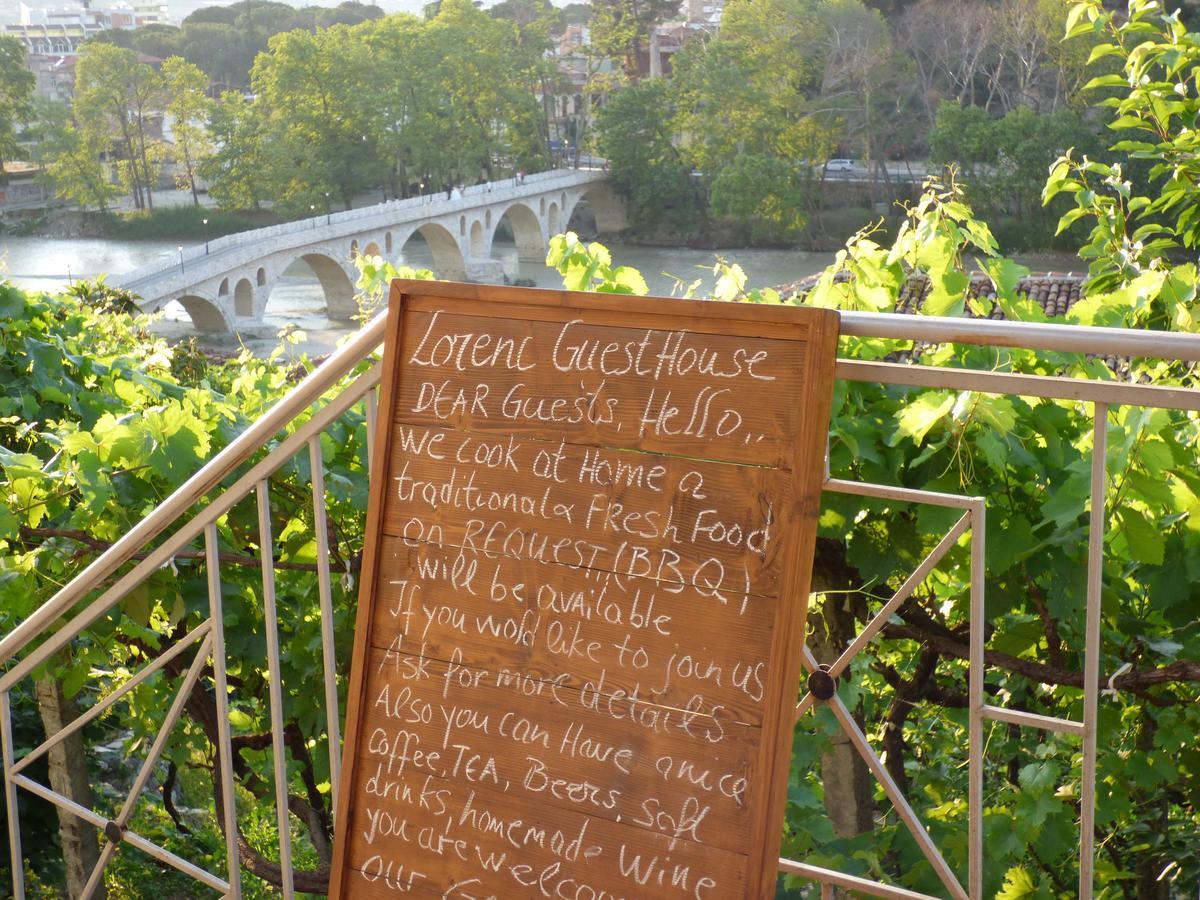 Lorenc GuestHouse
DEAR Guests, Hello,,
we cook at Home a
traditional & Fresh Food
on REQUEST,,(BBQ)
will be available
If you wold like to join us
Ask for more details
Also you can Have a nice
coffee, TEA, Beers, Saft
drinks, homemade Wine
you are welcom
our